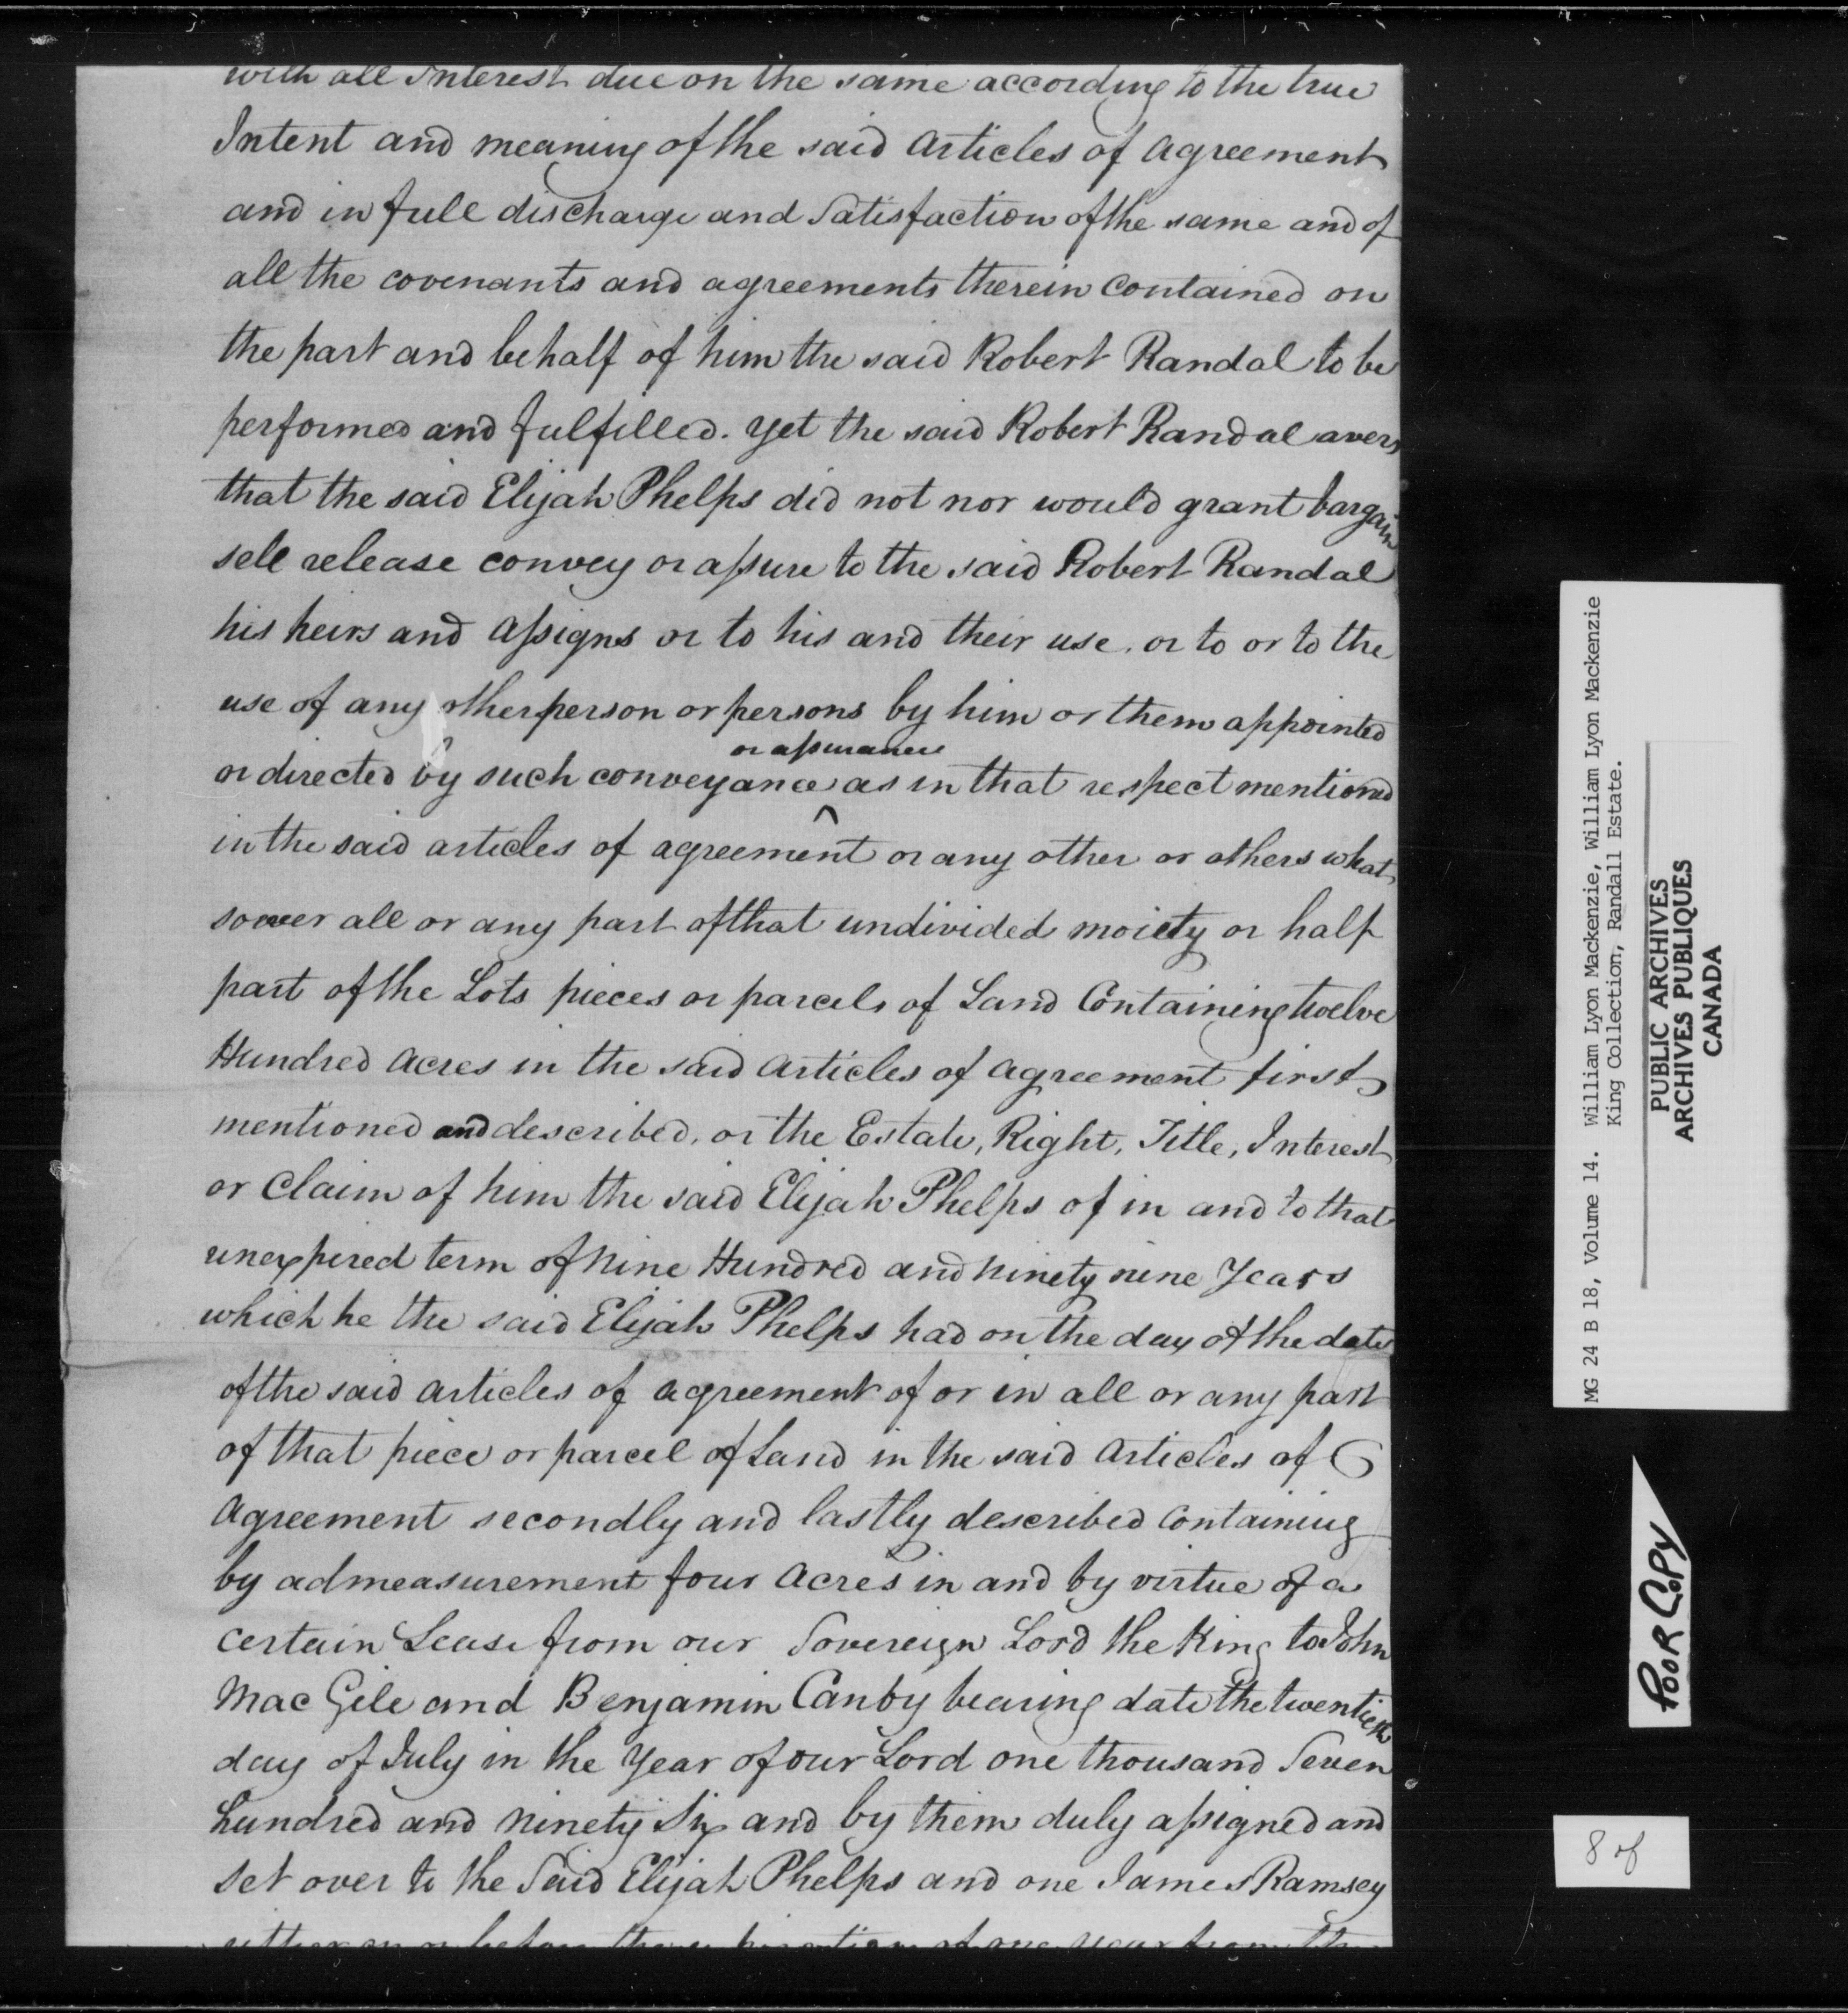 with all Interest due on the same according to the true
Intent and meaning of the said articles of agreement
and in full discharge and Satisfaction of the same and of
all the covenants and agreements therein contained on
the part and behalf of him the said Robert Randal to be
performed and fulfilled. yet the said Robert Randal avers
that the said Elijah Phelps did not nor would grant bargain
sell release convey or assure to the said Robert Randal
his heirs and assigns or to his and their use, or to or to the
use of any other person or persons by him or them appointed
or assurance
or directed by such conveyance ^ as in that respect mentioned
in the said articles of agreement or any other or others what
soever all or any part of that undivided moiety or half
part of the Lots pieces or parcels of Land Containing twelve
Hundred acres in the said articles of agreement first
mentioned and described, or the Estate, Right, Title, Interest
or Claim of him the said Elijah Phelps of in and to that
unexpired term of Nine Hundred and Ninety nine Years
which he the said Elijah Phelps had on the day of the date
of the said articles of agreement of or in all or any part
of that piece or parcel of Land in the said articles of
agreement secondly and lastly described containing
by admeasurement four acres in and by virtue of a
certain Lease from our Sovereign Lord the King to John
Mac Gile and Benjamin Canby bearing date the twentieth
day of July in the year of our Lord one thousand Seven
hundred and ninety Six and by them duly assigned and
set over to the Said Elijah Phelps and one James Ramsey
MG 24 B 18, Volume 14. William Lyon Mackenzie, William Lyon Mackenzie
King Collection, Randall Estate.
PUBLIC ARCHIVES
ARCHIVES PUBLIQUES
CANADA
POOR COPY
8 of